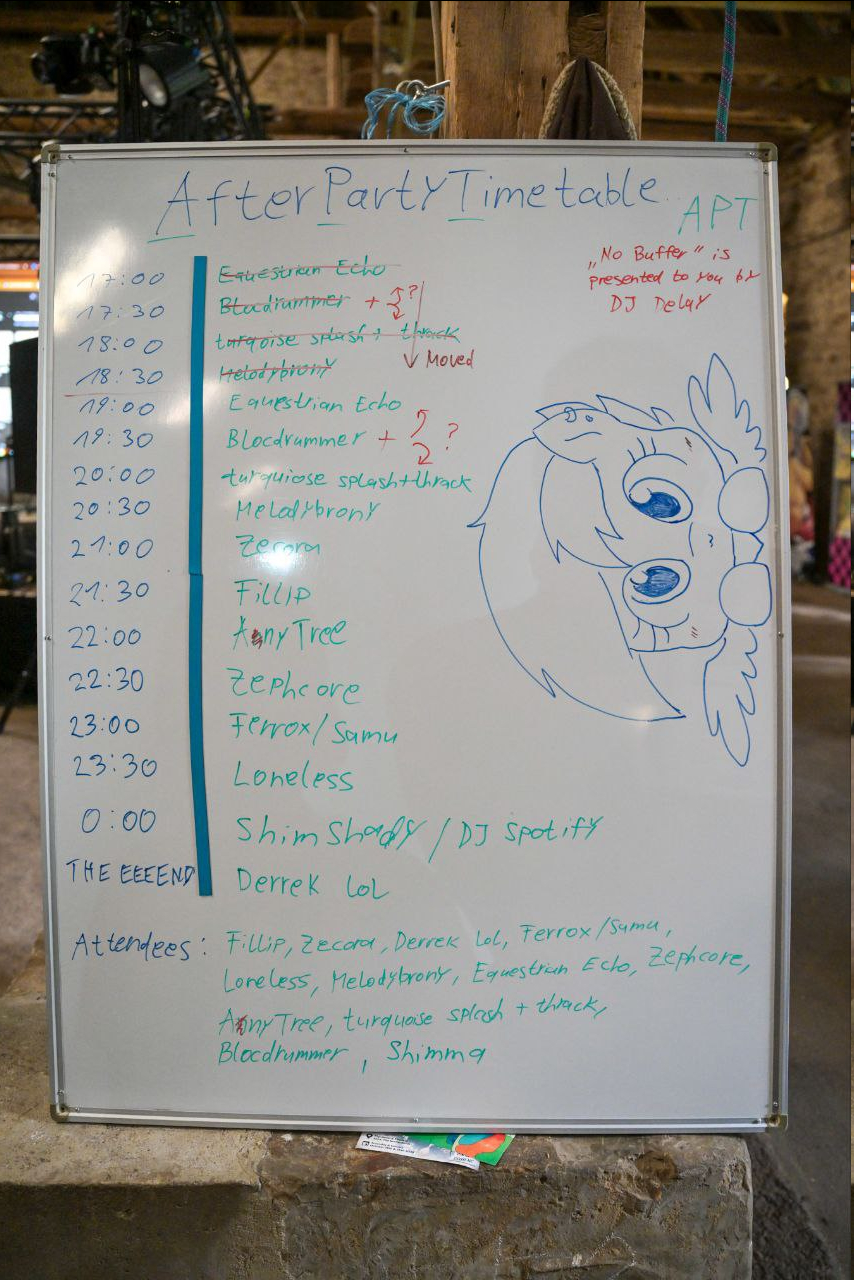 AfterPartyTimetable
APT
„No Buffer" is
presented to you by
DJ Delay
17:00 Equestrian Echo
17:30 Blocdrummer + ?
18:00 turqoise splash + thrack
18:30 Melodybrony
Moved
19:00 Equestrian Echo
19:30 Blocdrummer + ?
20:00 turquiose splash+thrack
20:30 Melodybrony
21:00 Zecora
21:30 Fillip
22:00 AnyTree
22:30 Zephcore
23:00 Ferrox/Samu
23:30 Loneless
0:00 ShimShady / DJ Spotify
THE EEEEND Derrek LoL
Attendees: Fillip, Zecora, Derrek LoL, Ferrox/Samu,
Loneless, Melodybrony, Equestrian Echo, Zephcore,
AnyTree, turquoise splash + thrack,
Blocdrummer, Shimma